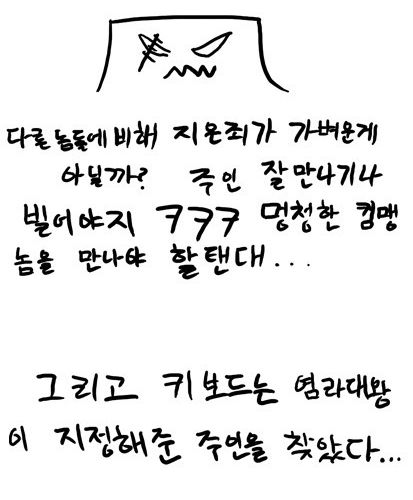 다른 놈들에 비해 지은죄가 가벼운게
아닐까? 주인 잘만나기나
빌어야지 ㅋㅋㅋ 멍청한 컴맹
놈을 만나야 할탠대...
그리고 키보드는 염라대왕
이 지정해준 주인을 찾았다...